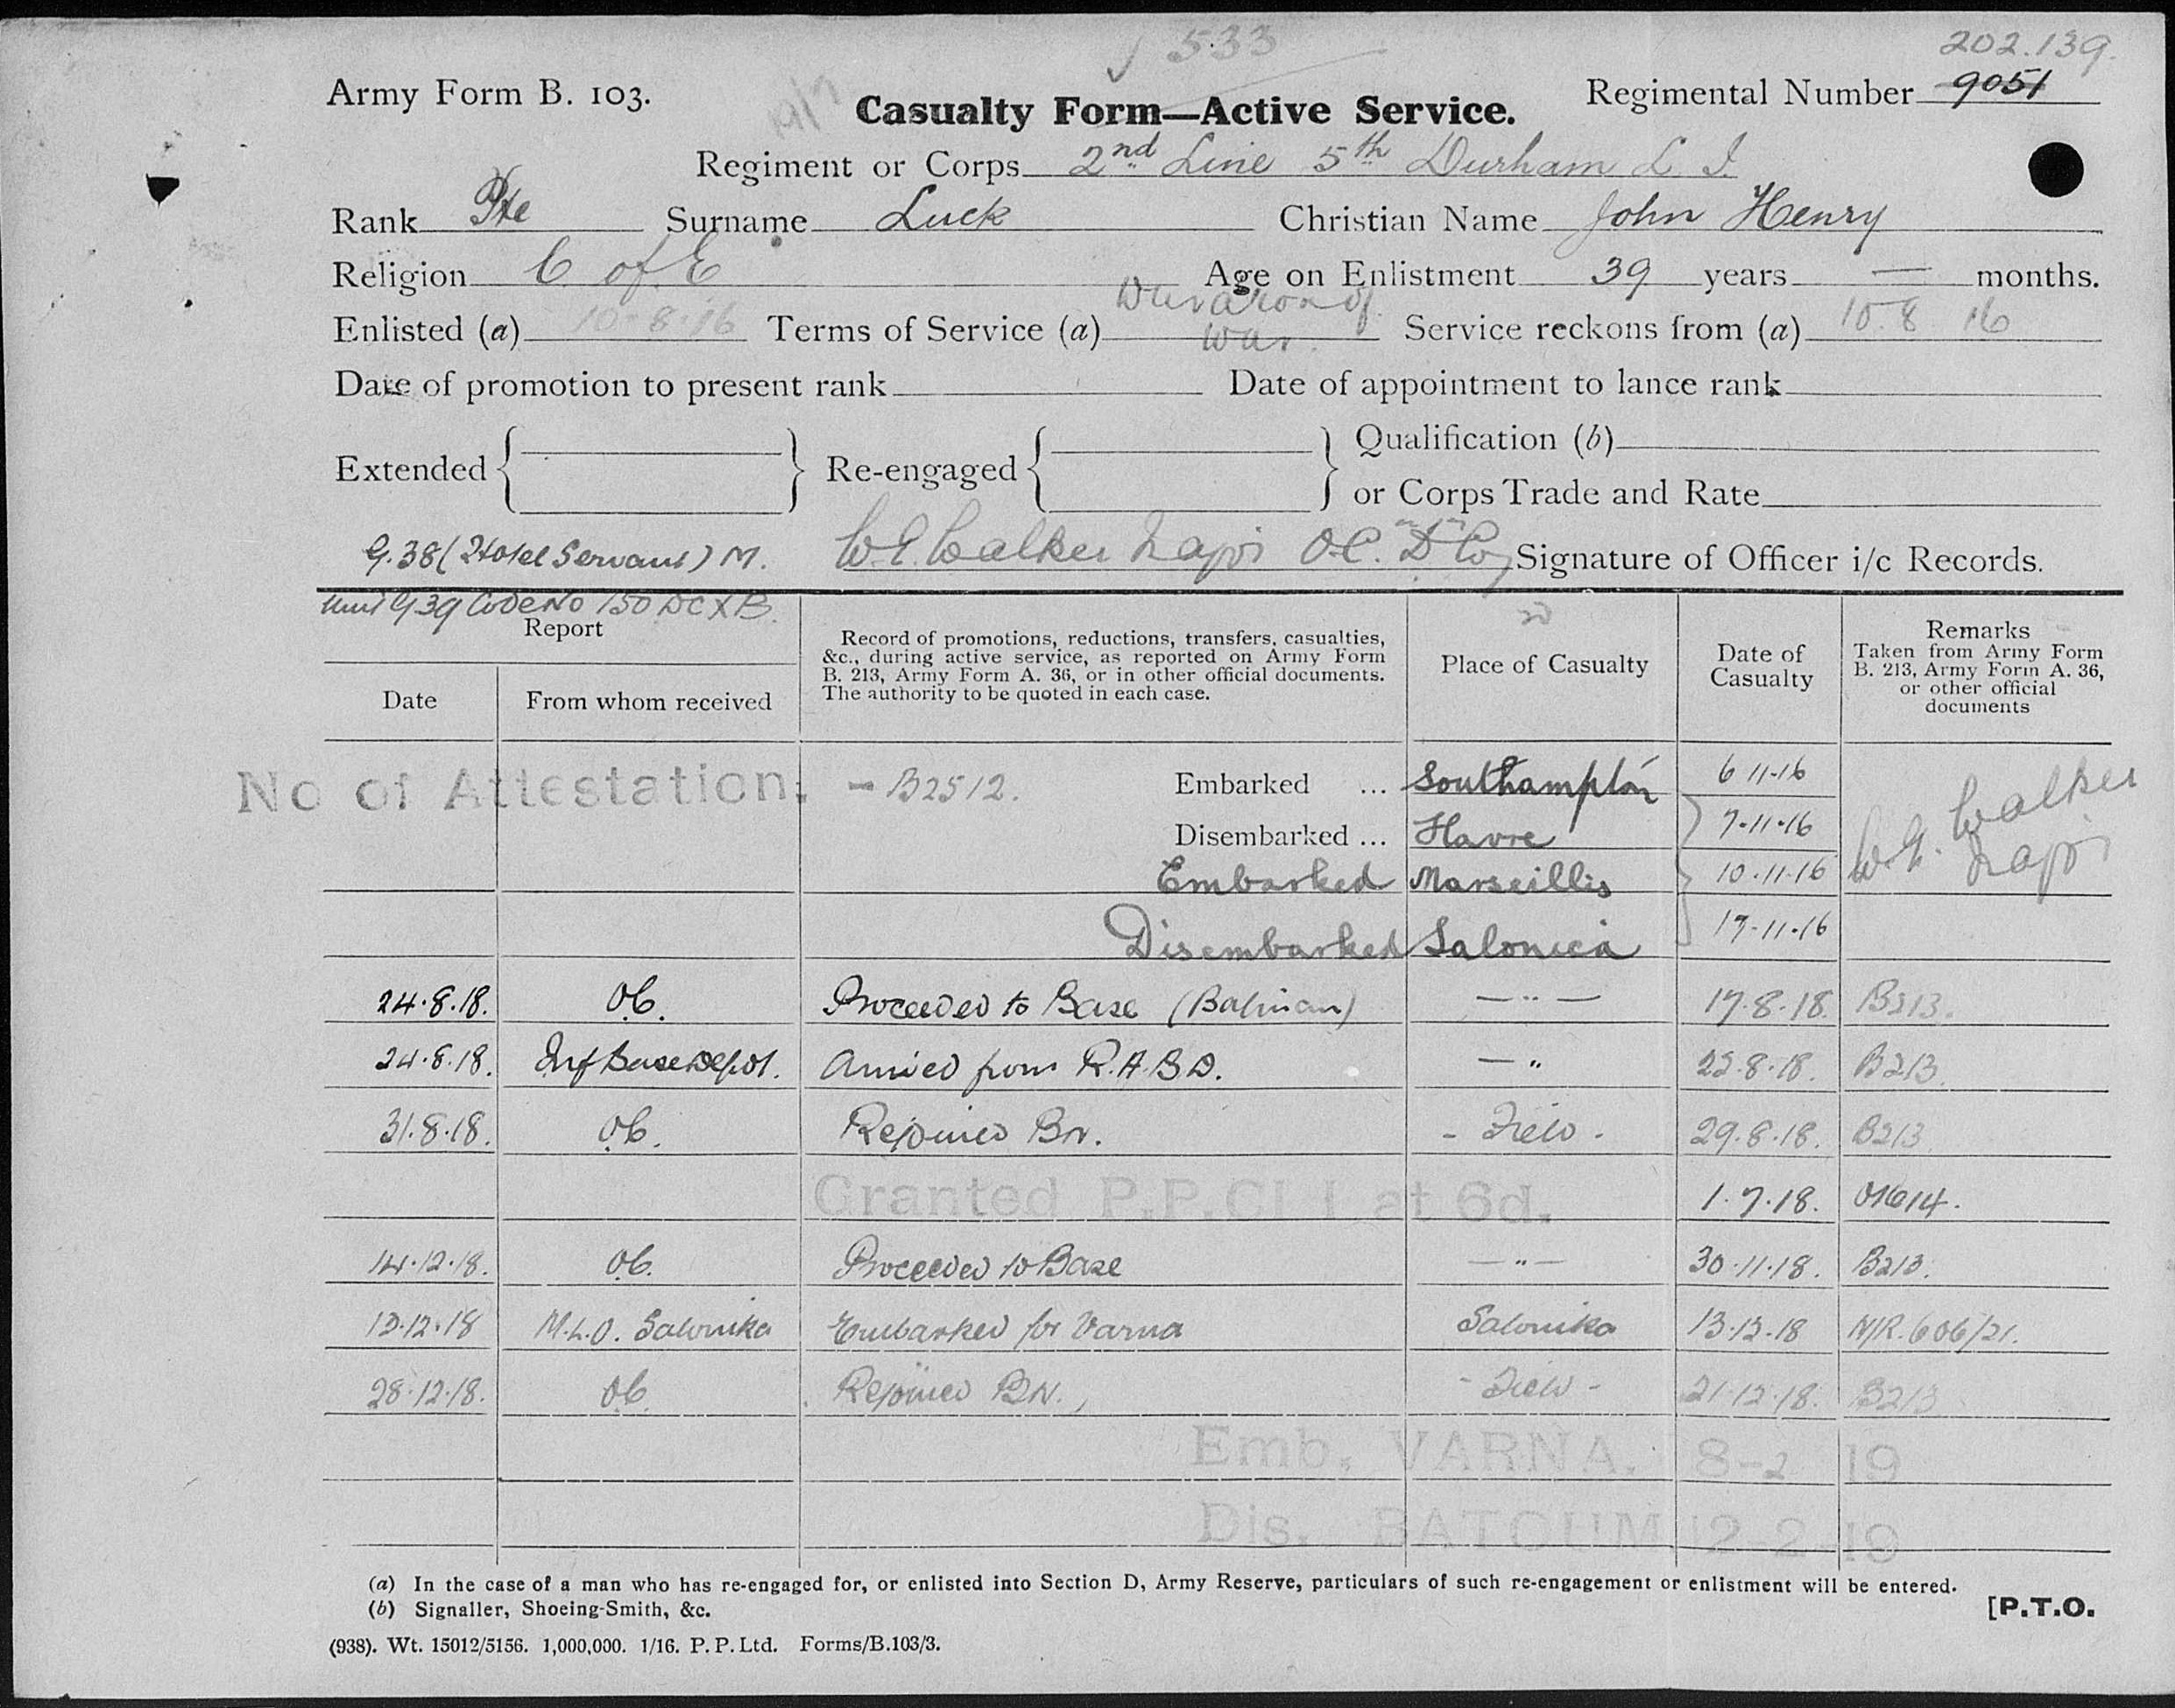 ✓ 533
202.139.
Army Form B. 103.
Casualty Form—Active Service.
Regimental Number 9051
Regiment or Corps 2nd Line 5th Durham L. I.
Rank Pte Surname Luck Christian Name John Henry
Religion C of E Age on Enlistment 39 years — months.
Enlisted (a) 10-8-16 Terms of Service (a) Duration of War. Service reckons from (a) 10.8 16
Date of promotion to present rank Date of appointment to lance rank
Extended Re-engaged Qualification (b)
or Corps Trade and Rate
G.38 (Hotel Servant) M. W. E. Walker Major O.C. "D" Coy Signature of Officer i/c Records.
Unit G39 Code No 150 DC X B.
Report
Date
From whom received
Record of promotions, reductions, transfers, casualties,
&c., during active service, as reported on Army Form
B. 213, Army Form A. 36, or in other official documents.
The authority to be quoted in each case.
Place of Casualty
Date of
Casualty
Remarks
Taken from Army Form
B. 213, Army Form A. 36,
or other official
documents
No of Attestation. - B2512. Embarked ... Southampton 6 11-16
Disembarked ... Havre 7-11-16
W. E. Walker Major
Embarked Marseillis 10-11-16
Disembarked Salonica 17-11-16
24.8.18. O.C. Proceeded to Base (Batman) — " — 17-8-18. B213.
24.8.18. Inf Base Depot. Arrived from R.A.B.D. — " 22-8-18. B213.
31.8.18. O.C. Rejoined Bn. - Field - 29.8.18. B213
Granted P.P.Cl I at 6d. 1.7.18.
14.12.18. O.C. Proceeded to Base — " — 30.11.18. B213.
13.12.18 M.L.O. Salonika Embarked for Varna Salonika 13.12.18 N/R. 606/21.
28.12.18. O.C. Rejoined BN. - Field - 21.12.18. B213
Emb. VARNA. 8-2 19
Dis. BATOUM 12-2-19
(a) In the case of a man who has re-engaged for, or enlisted into Section D, Army Reserve, particulars of such re-engagement or enlistment will be entered.
(b) Signaller, Shoeing-Smith, &c.
[P.T.O.
(938). Wt. 15012/5156. 1,000,000. 1/16. P. P. Ltd. Forms/B.103/3.